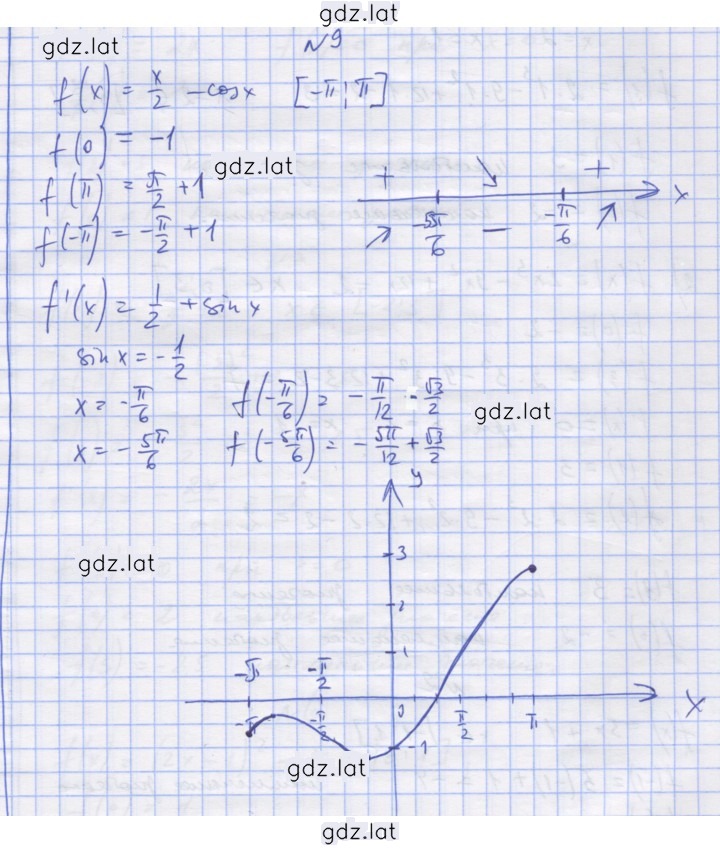 gdz.lat
gdz.lat
№9
f(x) = x/2 - cosx [-π; π]
f(0) = -1
gdz.lat
f(π) = π/2 + 1
f(-π) = -π/2 + 1
+ - +
-5π/6 -π/6 x
f'(x) = 1/2 + sin x
sin x = -1/2
x = -π/6 f(-π/6) = -π/12 - √3/2
gdz.lat
x = -5π/6 f(-5π/6) = -5π/12 + √3/2
y
3
gdz.lat
2
1
-π -π/2
-π -π/2 0 π/2 π x
-1
gdz.lat
gdz.lat